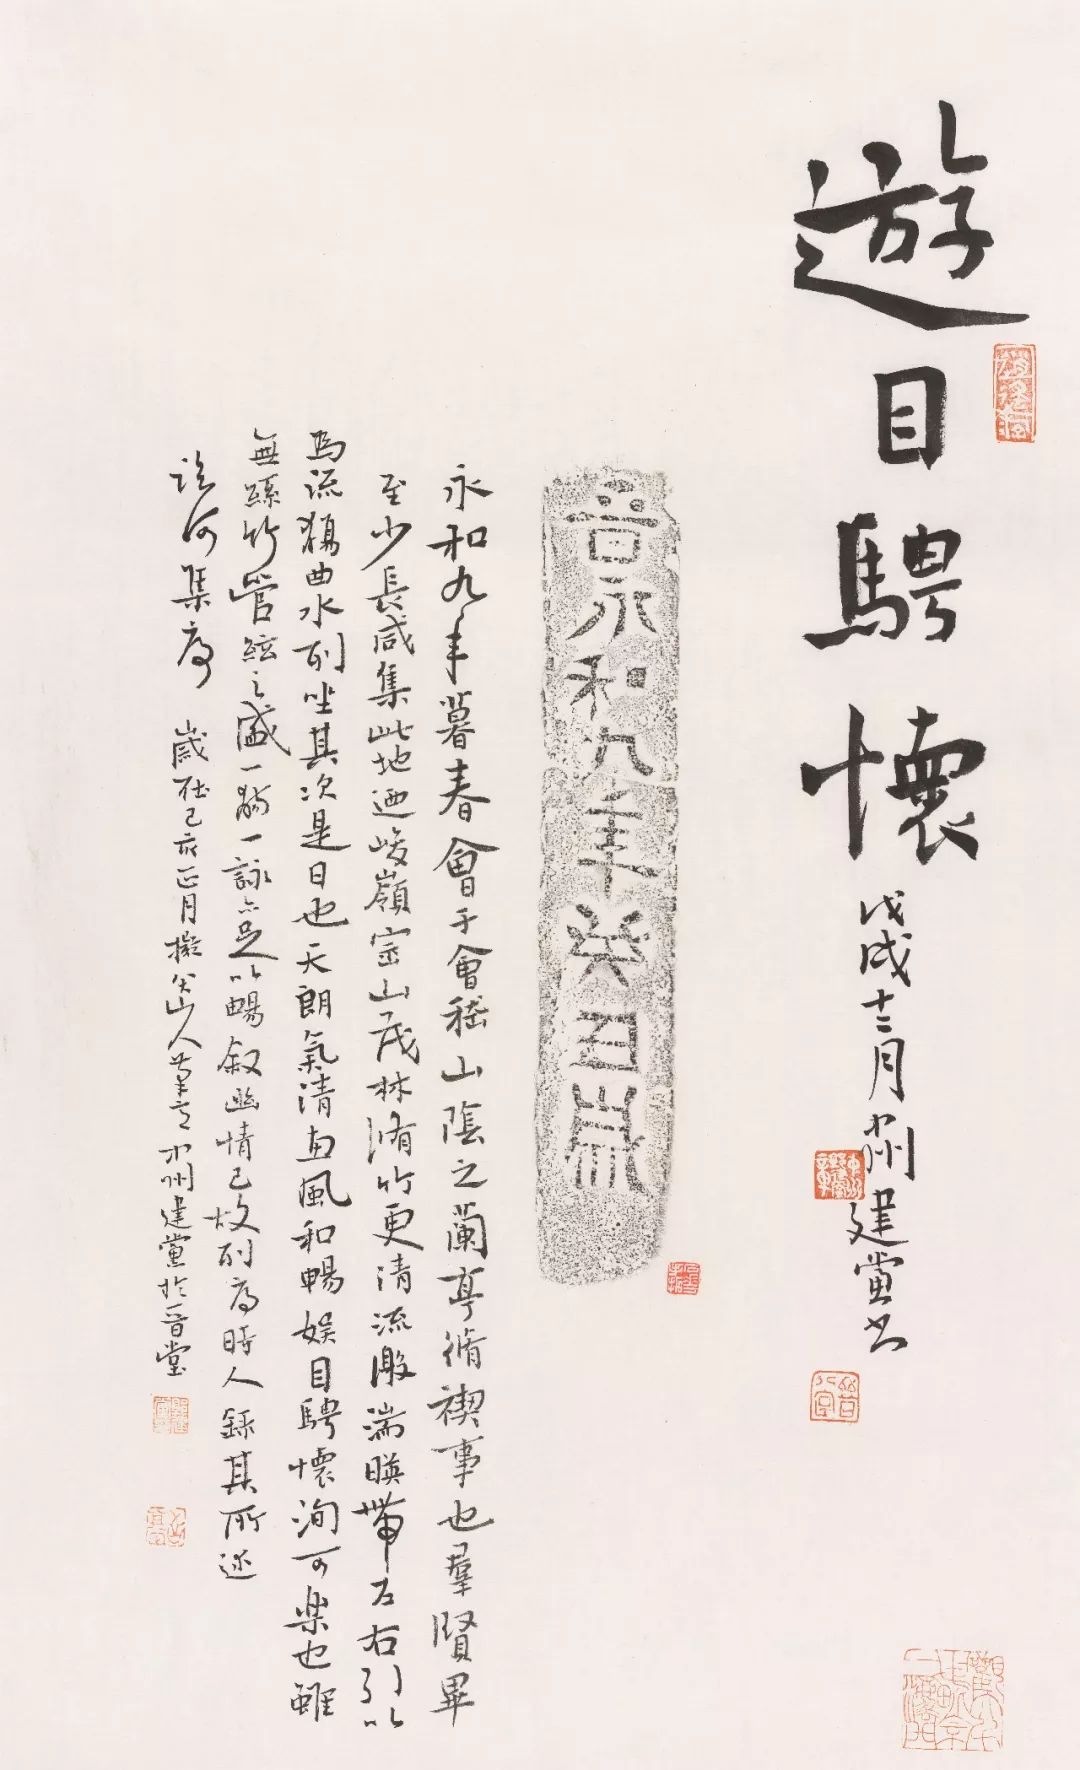 遊目騁懷
戊戌十二月中州建黨书
晉永和九年癸丑歲
永和九年暮春會于會嵇山陰之蘭亭脩禊事也羣賢畢
至少長咸集此地迺峻嶺崇山茂林脩竹更清流激湍暎帶左右引以
為流觴曲水列坐其次是日也天朗氣清惠風和暢娛目騁懷洵可樂也雖
無絲竹管絃之盛一觴一詠亦足以暢叙幽情已故列序時人錄其所述
臨河集序
歲在己亥正月擬八大山人筆意中州建黨於晉堂